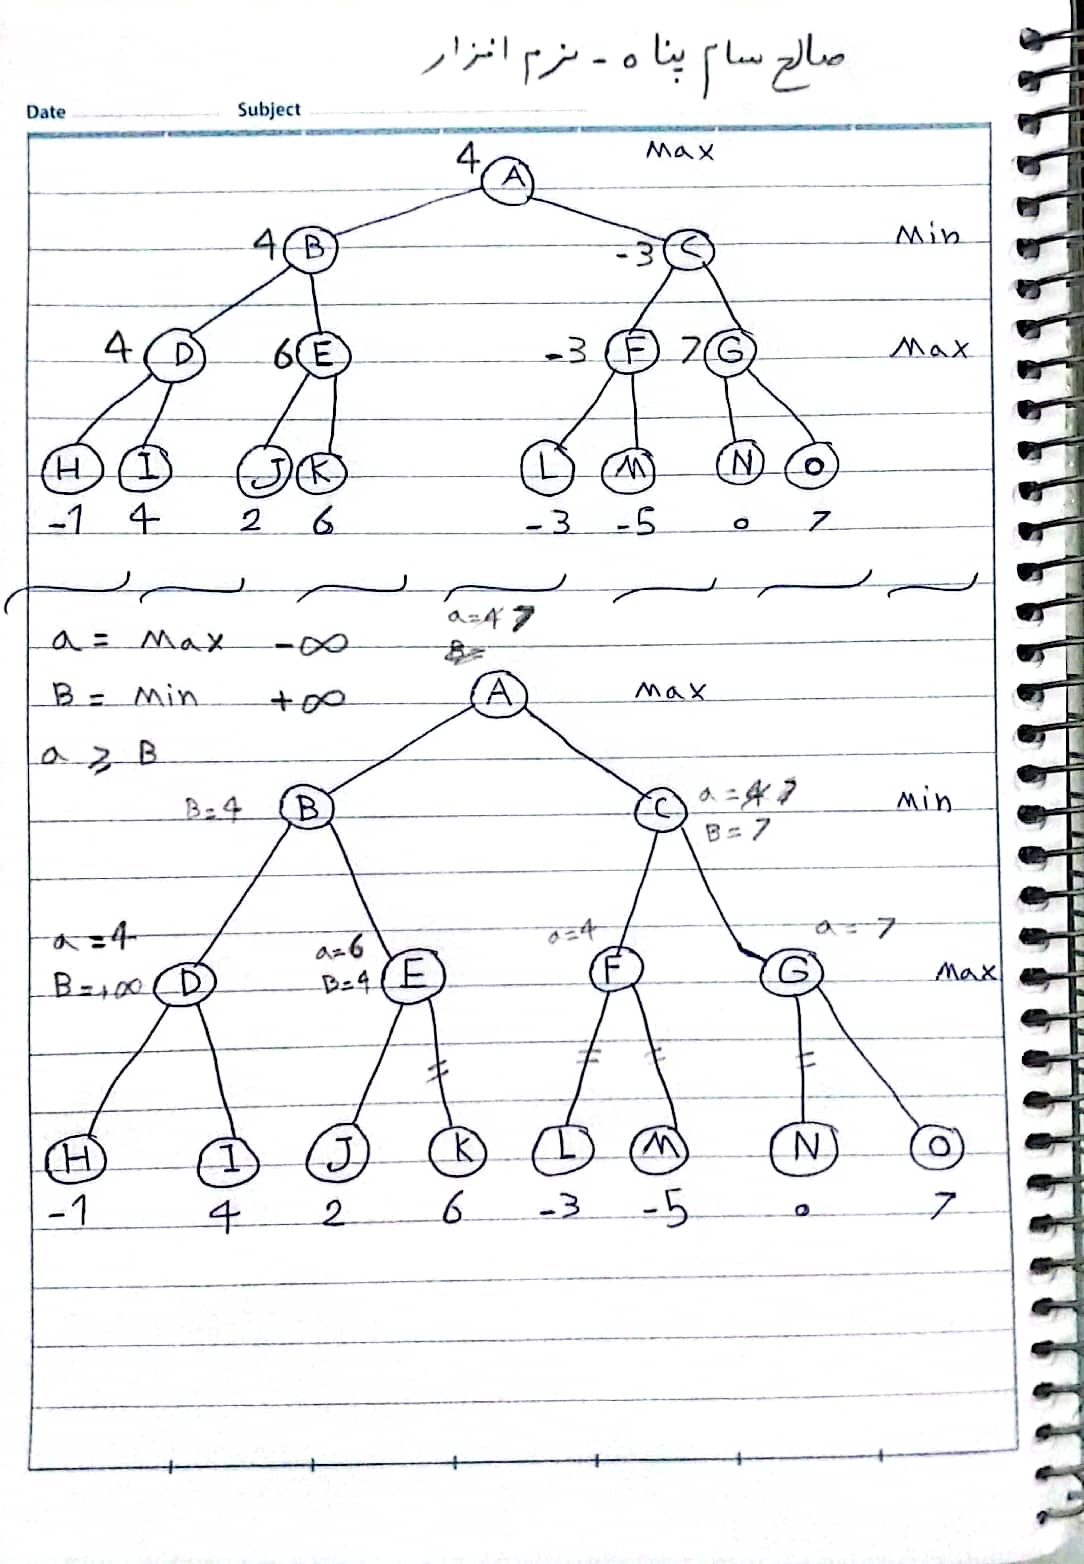 صالح سام پناه - نرم افزار
Date Subject
4 A Max
4 B -3 C Min
4 D 6 E -3 F 7 G Max
H I J K L M N O
-1 4 2 6 -3 -5 0 7
a = Max -∞ a=4 7
B = Min +∞ B=
A Max
a ≥ B
B=4 B C a=4 7 Min
B=7
a=4 a=6 a=4 a=7
B=+∞ D B=4 E F G Max
H I J K L M N O
-1 4 2 6 -3 -5 0 7